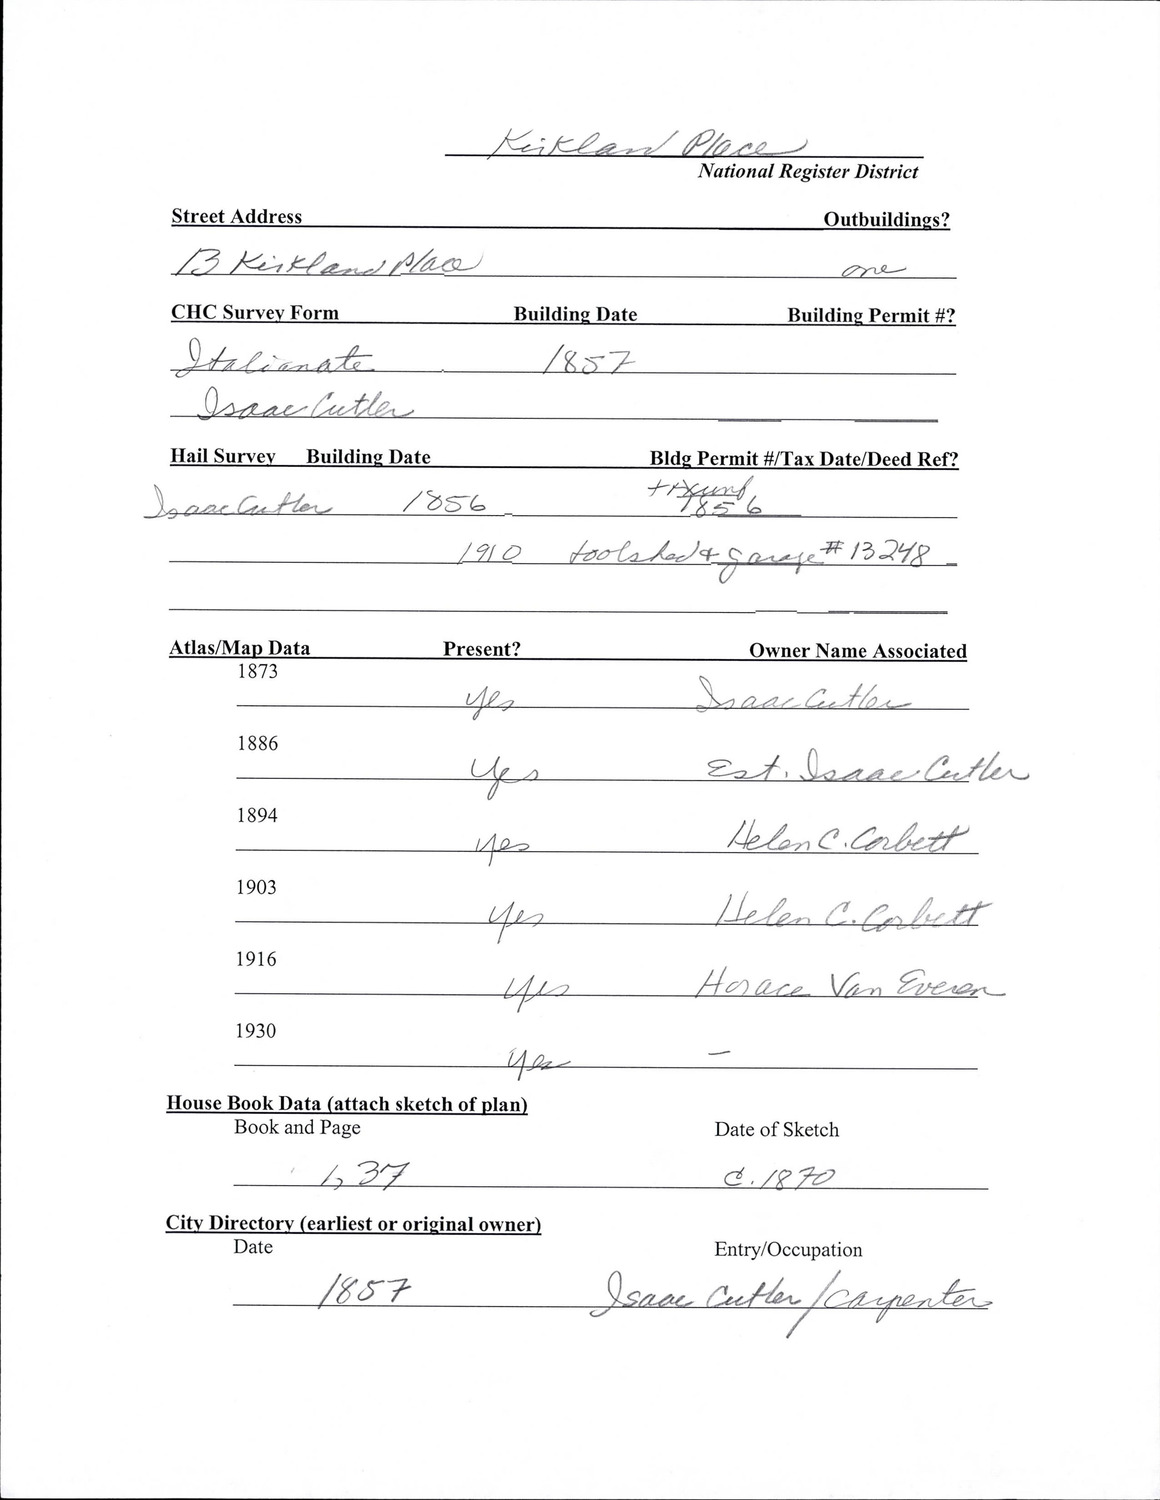 Kirkland Place
National Register District
Street Address Outbuildings?
13 Kirkland Place one
CHC Survey Form Building Date Building Permit #?
Italianate 1857
Isaac Cutler
Hail Survey Building Date Bldg Permit #/Tax Date/Deed Ref?
Isaac Cutler 1856 1856
1910 toolshed + garage #13248
Atlas/Map Data Present? Owner Name Associated
1873
yes Isaac Cutler
1886
yes Est. Isaac Cutler
1894
yes Helen C. Corbett
1903
yes Helen C. Corbett
1916
yes Horace Van Everen
1930
yes –
House Book Data (attach sketch of plan)
Book and Page Date of Sketch
1, 37 c. 1870
City Directory (earliest or original owner)
Date Entry/Occupation
1857 Isaac Cutler/carpenter